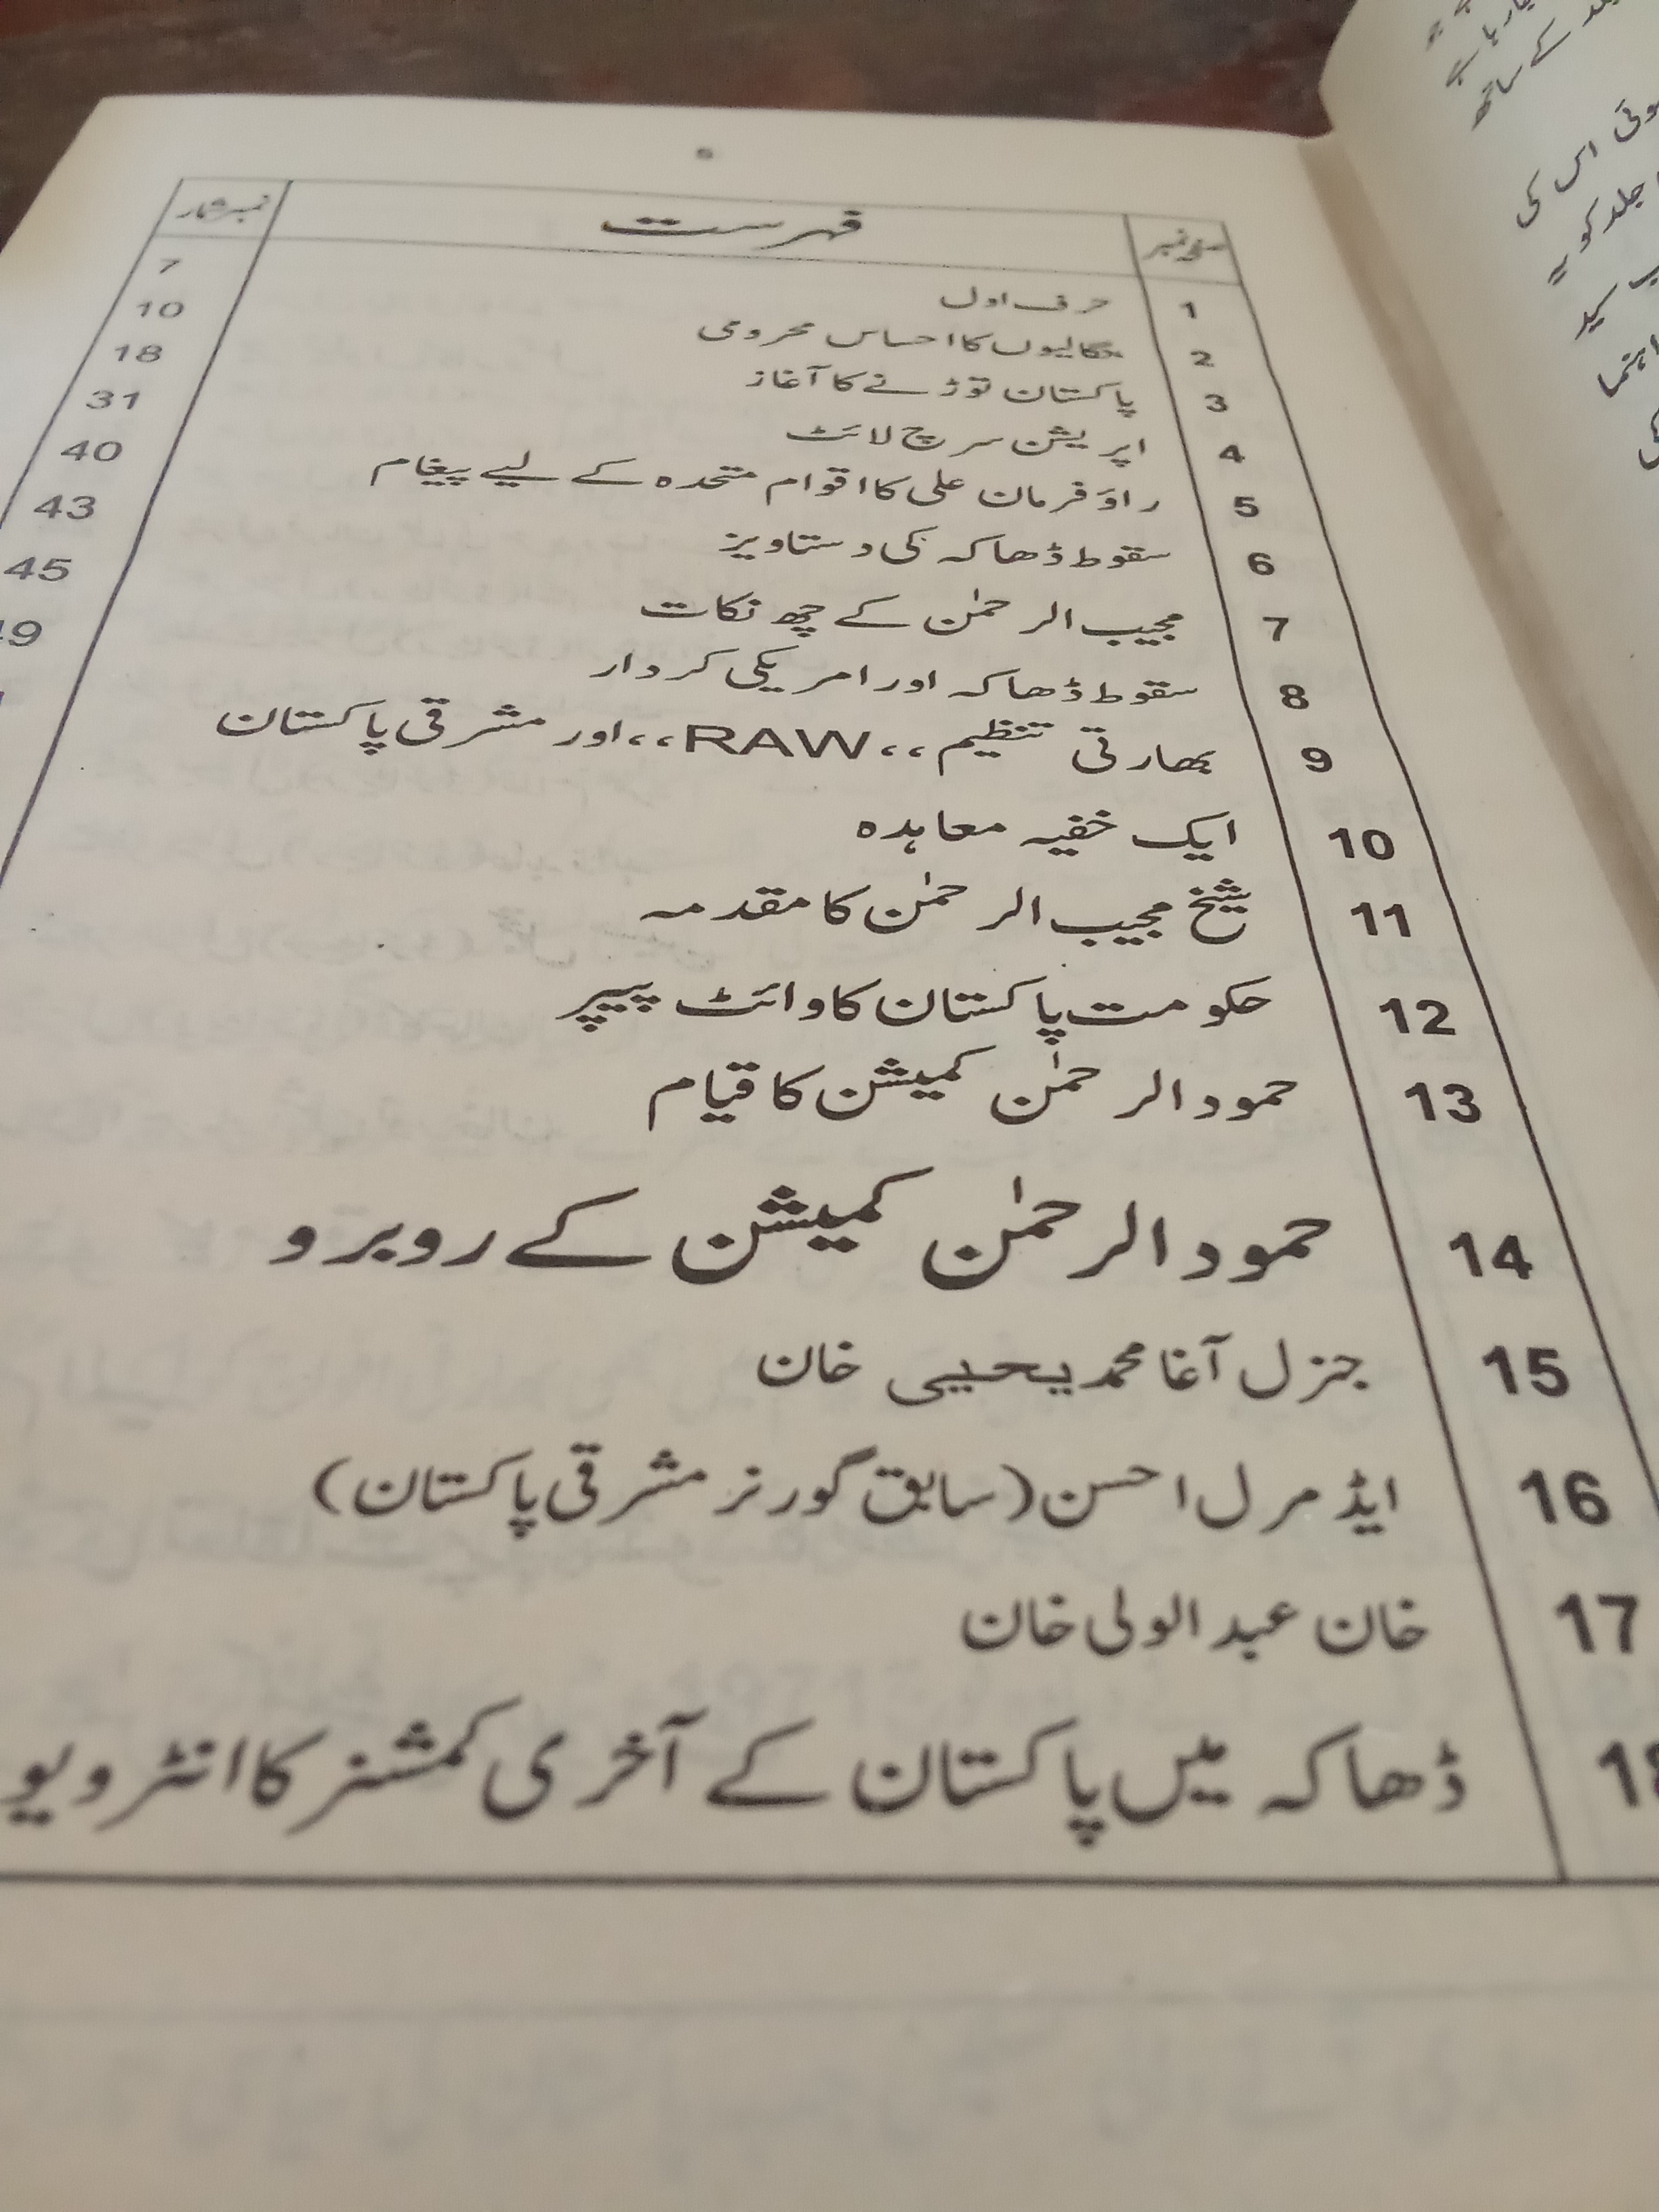 فہرست
صفحہ نمبر فہرست نمبر شمار
1 حرف اول 7
2 بنگالیوں کا احساس محرومی 10
3 پاکستان توڑنے کا آغاز 18
4 اپریشن سرچ لائٹ 31
5 راؤ فرمان علی کا اقوام متحدہ کے لیے پیغام 40
6 سقوط ڈھاکہ کی دستاویز 43
7 مجیب الرحمٰن کے چھ نکات 45
8 سقوط ڈھاکہ اور امریکی کردار
9 بھارتی تنظیم ،،RAW،، اور مشرقی پاکستان
10 ایک خفیہ معاہدہ
11 شیخ مجیب الرحمٰن کا مقدمہ
12 حکومت پاکستان کا وائٹ پیپر
13 حمود الرحمٰن کمیشن کا قیام
14 حمود الرحمٰن کمیشن کے روبرو
15 جنرل آغا محمد یحییٰ خان
16 ایڈمرل احسن (سابق گورنر مشرقی پاکستان)
17 خان عبدالولی خان
ڈھاکہ میں پاکستان کے آخری کمشنر کا انٹرویو